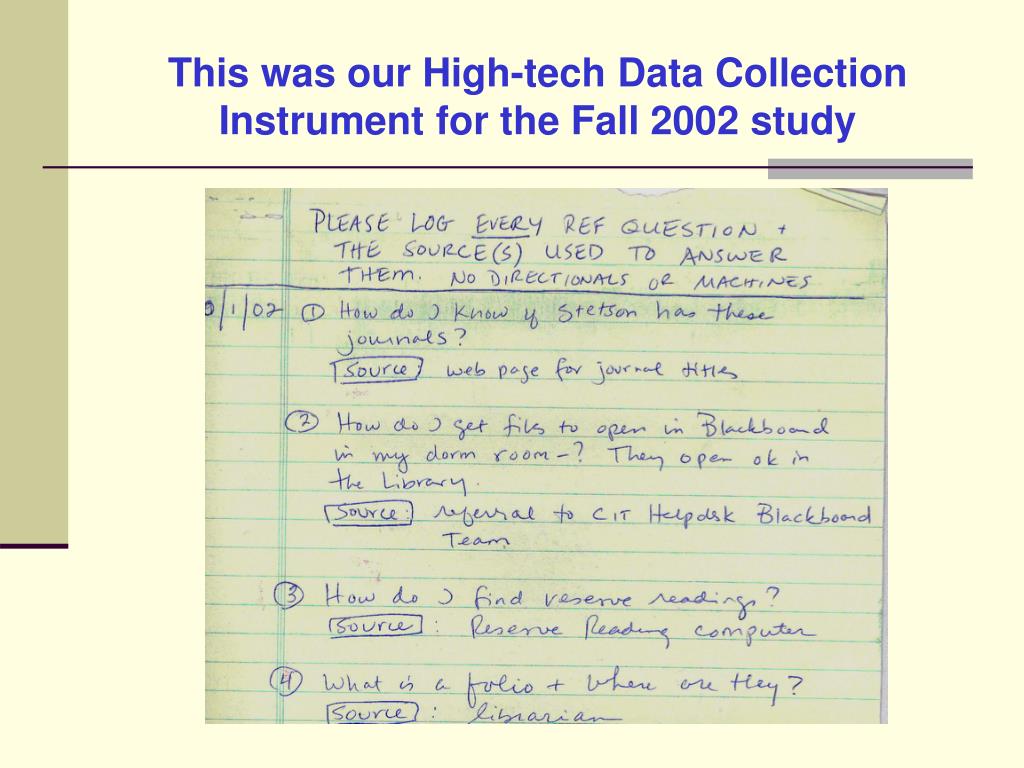 This was our High-tech Data Collection
Instrument for the Fall 2002 study
PLEASE LOG EVERY REF QUESTION +
THE SOURCE(S) USED TO ANSWER
THEM. NO DIRECTIONALS OR MACHINES
0/1/02 ① How do I know if Stetson has these
journals?
Source web page for journal titles
② How do I get files to open in Blackboard
in my dorm room-? They open ok in
the Library.
Source: referral to CIT Helpdsk Blackboard
Team
③ How do I find reserve readings?
Source: Reserve Reading computer
④ What is a folio + where are they?
Source: librarian